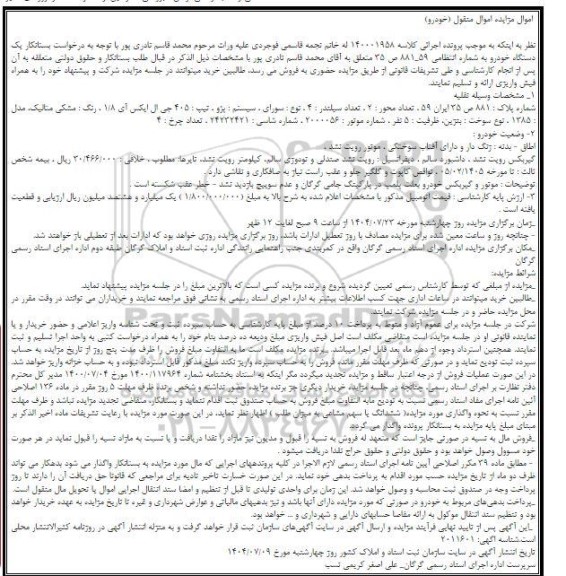 اموال مزایده اموال منقول (خودرو)
نظر به اینکه به موجب پرونده اجرائی کلاسه ۱۴۰۰۰۱۹۵۸ له خانم نجمه قاسمی فوجردی علیه وراث مرحوم محمد قاسم نادری پور با توجه به درخواست بستانکار یک
دستگاه خودرو به شماره انتظامی ۵۹_۸۸۱ ص ۳۵ متعلق به آقای محمد قاسم نادری پور با مشخصات ذیل الذکر در قبال طلب بستانکار و حقوق دولتی متعلقه به آن
پس از انجام کارشناسی و طی تشریفات قانونی از طریق مزایده حضوری به فروش می رسد، طالبین خرید میتوانند در جلسه مزایده شرکت و پیشنهاد خود را به همراه
فیش واریزی ارائه و تسلیم نمایند.
۱_ مشخصات وسیله نقلیه
شماره پلاک : ۸۸۱ ص ۳۵ ایران ۵۹ ، تعداد محور : ۲ ، تعداد سیلندر : ۴ ، نوع : سواری ، سیستم : پژو ، تیپ : ۴۰۵ جی ال ایکس آی ۱/۸ ، رنگ : مشکی متالیک، مدل
: ۱۳۸۵ ، نوع سوخت : بنزین، ظرفیت : ۵ نفر ، شماره موتور : ۲۰۰۰۰۵۶ ، شماره شاسی : ۲۴۲۳۲۴۲۱ ، تعداد چرخ : ۴
۲- وضعیت خودرو :
اطاق - بدنه : زنگ دار و دارای آفتاب سوختگی ، موتور رویت نشد ،
گیربکس رویت نشد ، داشبورد سالم ، دیفرانسیل : رویت نشد صندلی و تودوزی سالم، کیلومتر رویت نشد، تایرها: مطلوب ، خلافی : ۳۰/۴۶۶/۰۰۰ ریال ، بیمه شخص
ثالث : تا مورخه ۰۵/۰۲/۱۴۰۵، نواقص کاپوت و گلگیر جلو و عقب راست نیاز به صافکاری و نقاشی دارد.
توضیحات : موتور و گیربکس خودرو بعلت پلمپ در پارکینگ جامی گرگان و عدم سوییچ بازدید نشد - خطر عقب شکسته است .
۳- ارزش پایه کارشناسی : قیمت اتومبیل مذکور با مشخصات اعلام شده به شرح بالا به مبلغ (۱/۸۰۰/۰۰۰/۰۰۰) یک میلیارد و هشتصد میلیون ریال ارزیابی و قطعیت
یافته است .
_زمان برگزاری مزایده روز چهارشنبه مورخه ۱۴۰۴/۰۷/۲۳ از ساعت ۹ صبح لغایت ۱۲ ظهر
- چنانچه روز و ساعت معین شده برای مزایده مصادف با روز تعطیل ادارات باشد، روز برگزاری مزایده روزی خواهد بود که ادارات بعد از تعطیلی باز خواهند شد.
_مکان برگزاری مزایده اداره اجرای اسناد رسمی گرگان واقع در کمربندی جنب راهنمایی رانندگی اداره ثبت اسناد و املاک گرگان طبقه دوم اداره اجرای اسناد رسمی
گرگان
شرائط مزایده:
_مزایده از مبلغی که توسط کارشناس رسمی تعیین گردیده شروع و برنده مزایده کسی است که بالاترین مبلغ را در جلسه مزایده پیشنهاد نماید.
_طالبین خرید میتوانند در ساعات اداری جهت کسب اطلاعات بیشتر به اداره اجرای اسناد رسمی به نشانی فوق مراجعه نمایند و خریداران می توانند در وقت مقرر در
محل مزایده حاضر و در جلسه مزایده شرکت نمایند.
شرکت در جلسه مزایده برای عموم آزاد و منوط به پرداخت ۱۰ درصد از مبلغ پایه کارشناسی به حساب سپرده ثبت و تحت شناسه واریز اعلامی و حضور خریدار و یا
نماینده قانونی او در جلسه مزایده است و متقاضی مکلف است اصل فیش واریزی مبلغ ودیعه ده درصد بنام خود را به همراه درخواست کتبی به واحد اجرا تسلیم و ثبت
نمایند. همچنین استرداد وجوه از دهم ماه بعد قابل اجرا میباشد _برنده مزایده مکلف است ما به التفاوت مبلغ فروش را ظرف مدت پنج روز از تاریخ مزایده به حساب
سپرده ثبت تودیع نماید و در صورتی که ظرف مهلت مقرر مانده فروش را به حساب سپرده واریز نکند مبلغ مذکور قابل استرداد نبوده و به حساب خزانه واریز خواهد شد.
در این صورت عملیات فروش از درجه اعتبار ساقط و مزایده تجدید میگردد مگر اینکه به استناد بخشنامه شماره ۱۴۰۰/۱۱۷۹۶۴ مورخ ۱۴۰۰/۰۷/۰۴ مدیر کل محترم
دفتر نظارت بر اجرای اسناد رسمی، چنانچه در جلسه مزایده، خریدار دیگری جز برنده مزایده حضور نداشته و شخص برنده ظرف مهلت ۵ روز مقرر در ماده ۱۳۶ اصلاحی
آئین نامه اجرای مفاد اسناد رسمی نسبت به تودیع مابه التفاوت مبلغ فروش به حساب صندوق ثبت اقدام ننماید و بستانکار، متقاضی تجدید مزایده نباشد و ظرف مهلت
مقرر نسبت به نحوه واگذاری مورد مزایده( ششدانگ یا سهم مشاعی به میزان طلب ) اظهار نظر نماید، در این صورت مورد مزایده با رعایت تشریفات ماده اخیر الذکر بر
مبنای مبلغ پایه مزایده به بستانکار پرونده واگذار می گردد.
_فروش مال به نسیه در صورتی جایز است که متعهد له فروش به نسیه را قبول و مدیون نیز مازاد را نقدا دریافت و یا نسبت به مازاد نسیه را قبول نماید در هر صورت
خود مسوول وصول خواهد بود و حقوق دولتی و حقوق حراج نقدا دریافت میشود .
- مطابق ماده ۳۹ مکرر اصلاحی آیین نامه اجرای اسناد رسمی لازم الاجرا در کلیه پروندههای اجرایی که مال مورد مزایده به بستانکار واگذار می شود بدهکار می تواند
ظرف دو ماه از تاریخ مزایده حسب مورد اقدام به پرداخت بدهی خود نماید. در این صورت خسارت تاخیر تادیه برای مراجعی که قانونا حق دریافت آن را دارند تا روز
پرداخت وجه در صندوق ثبت محاسبه و وصول خواهد شد. این زمان برای واحدی تولیدی تا قبل از تنظیم و امضا سند انتقال اجرایی اموال یا تحویل مال منقول است.
_پرداخت بدهی‌های مربوط به خودرو در صورتی که مورد مزایده دارای آنها باشد و نیز بدهیهای مالیاتی و عوارض شهرداری و غیره تا تاریخ مزایده به عهده خریدار خواهد
بود و تنظیم سند انتقال موکول به ارائه مفاصا حسابهای دارایی و شهرداری و ... خواهد بود.
_این آگهی پس از تایید نهایی فرآیند مزایده و ارسال آگهی در سایت آگهی‌های سازمان ثبت قرار خواهد گرفت و به منزله انتشار آگهی در روزنامه کثیرالانتشار محلی
است.شناسه آگهی: ۲۰۱۱۶۰۱
تاریخ انتشار آگهی در سایت سازمان ثبت اسناد و املاک کشور روز چهارشنبه مورخ ۱۴۰۴/۰۷/۰۹
سرپرست اداره اجرای اسناد رسمی گرگان_ علی اصغر کریمی نسب
ParsNamadData
۰۲۱-۸۸۳۴۹۶۷۰